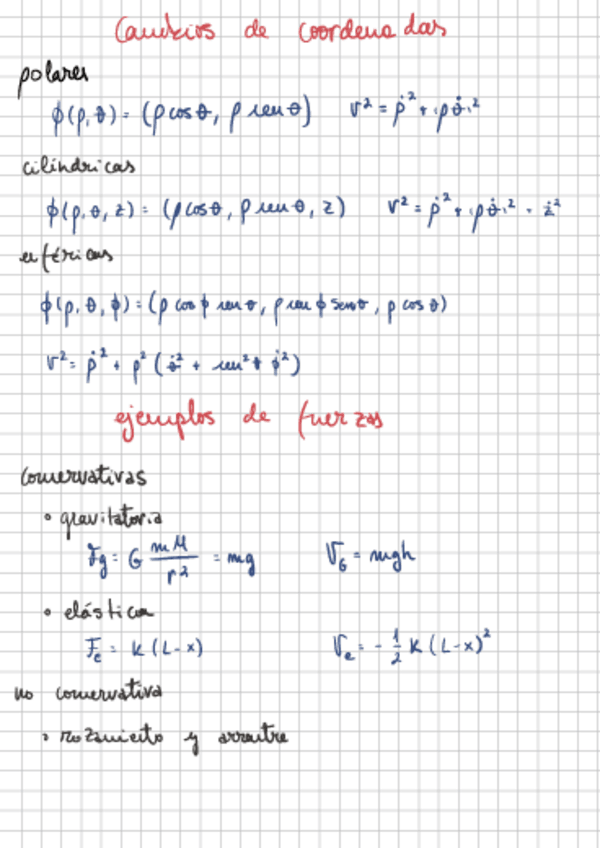 Cambios de coordenadas
polares
ϕ(ρ,θ) = (ρ cos θ, ρ sen θ) v² = ρ̇² + (ρθ̇)²
cilíndricas
ϕ(ρ,θ,z) = (ρ cos θ, ρ sen θ, z) v² = ρ̇² + (ρθ̇)² + ż²
esféricas
ϕ(ρ,θ,ϕ) = (ρ cos ϕ sen θ, ρ sen ϕ sen θ, ρ cos θ)
v² = ρ̇² + ρ² (θ̇² + sen² θ ϕ̇²)
ejemplos de fuerzas
Conservativas
• gravitatoria
Fg = G mM/r² = mg V_G = mgh
• elástica
F_e = K (L-x) V_e = - 1/2 K (L-x)²
no conservativa
• rozamiento y arrastre